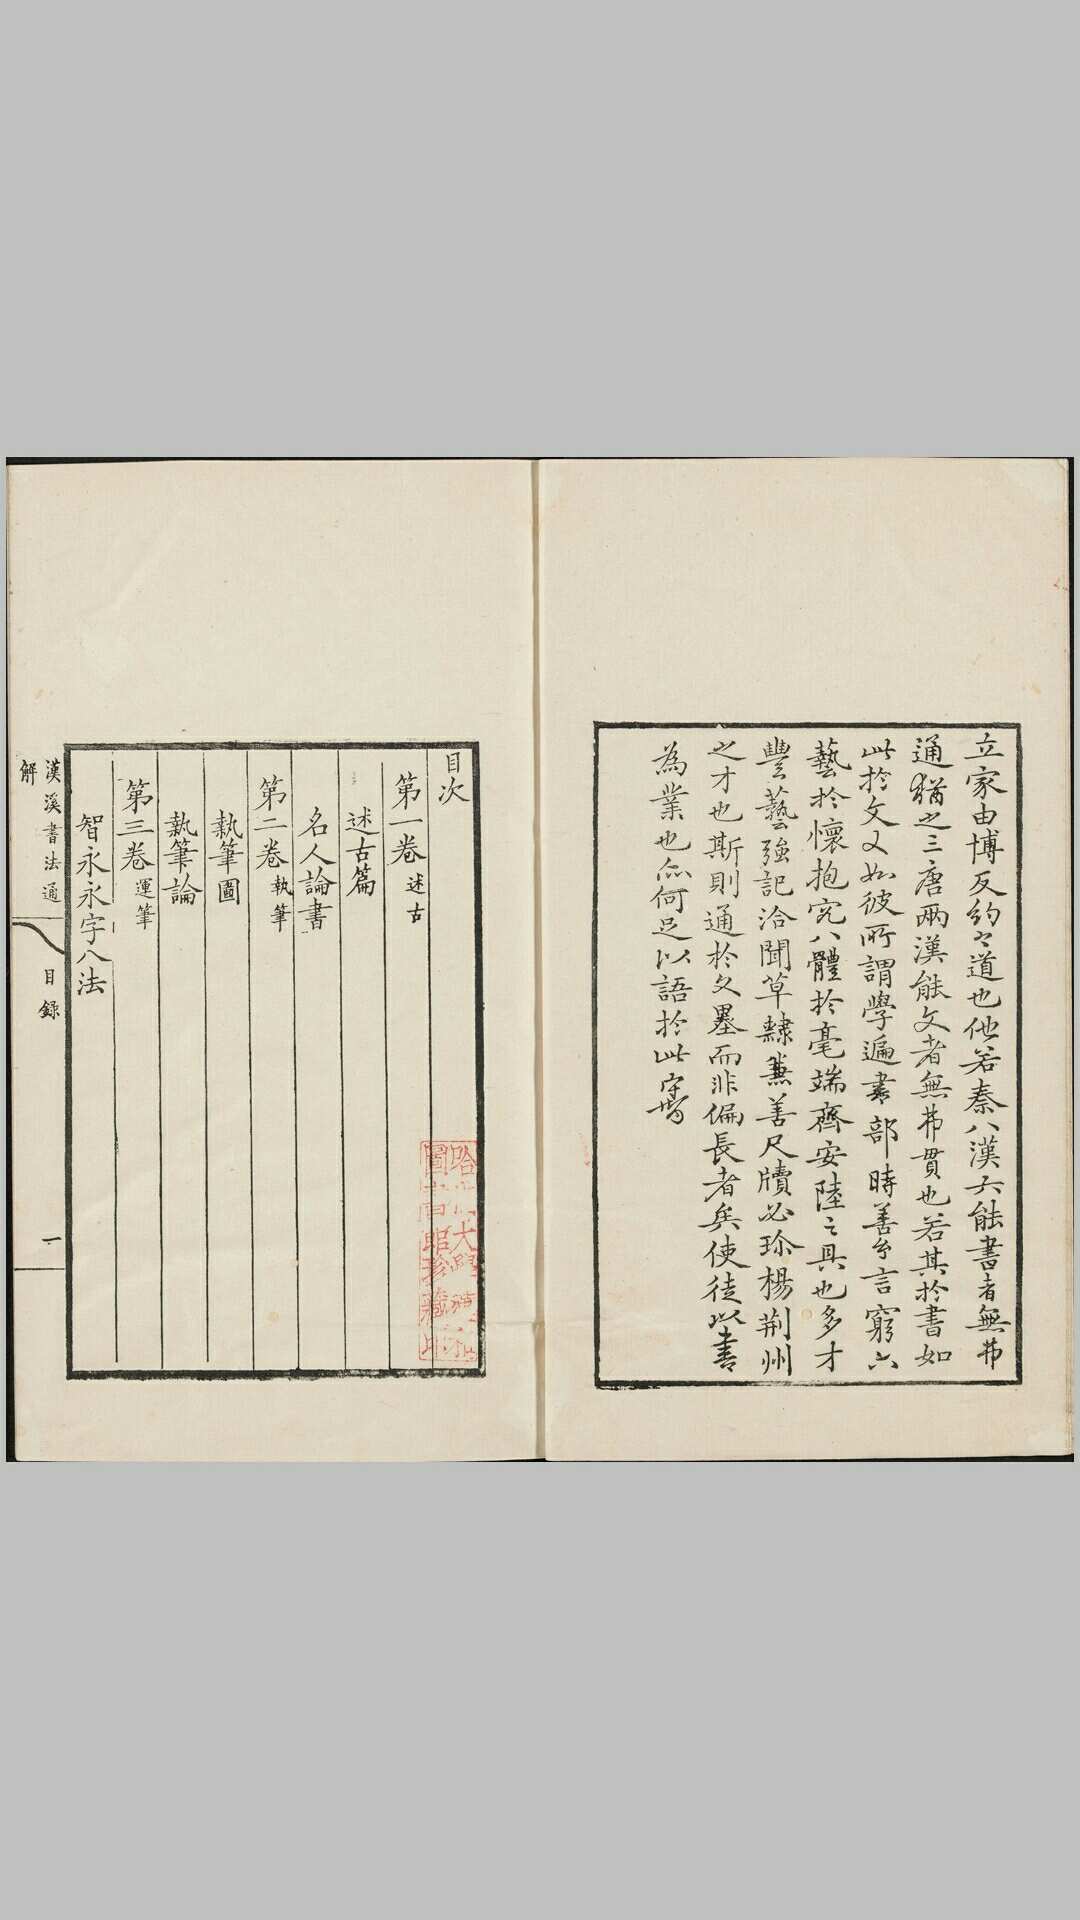 立家由博反約之道也他若秦八漢六能書者無弗
通猶之三唐兩漢能文者無弗貫也若其於書如
此於文又如彼所謂學遍書部時善多言窮六
藝於懷抱究八體於毫端齊安陸之具也多才
豐藝強記洽聞草隸兼善尺牘必珍楊荊州
之才也斯則通於文墨而非偏長者矣使徒以書
為業也亦何足以語於此
目次
第一卷 述古
述古篇
名人論書
第二卷 執筆
執筆圖
執筆論
第三卷 運筆
智永永字八法
漢溪書法通
解
目錄
一